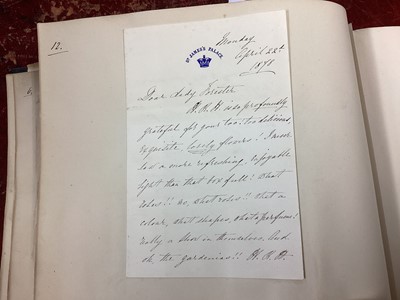 12.
ST. JAMES'S PALACE.
Monday
April 22nd
1878
Dear Lady Forester
H. R. H. is so profoundly
grateful for your too too delicious,
exquisite, lovely flowers! I never
saw a more refreshing, enjoyable
sight than that box full! What
roses!! oh, what roses!! What a
colour, what shapes, what a perfume!
really a show in themselves. And
oh the gardenias!! H. R. H.